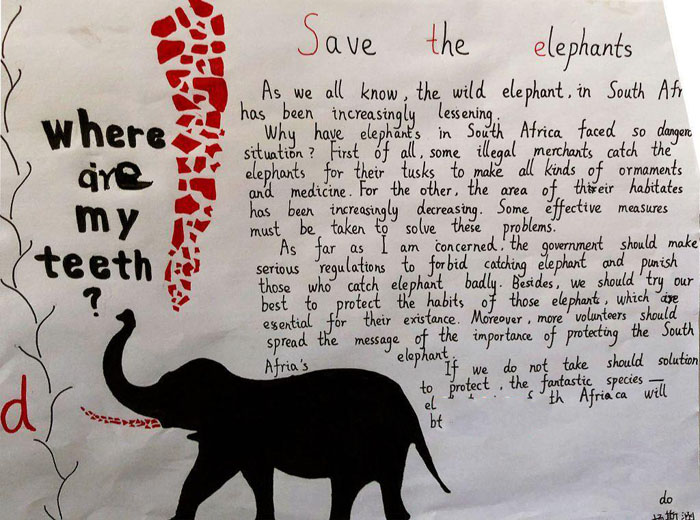 Save the elephants
where
are
my
teeth
?
As we all know, the wild elephant, in South Afr
has been increasingly lessening.
Why have elephants in South Africa faced so danger
situation? First of all, some illegal merchants catch the
elephants for their tusks to make all kinds of ormaments
and medicine. For the other, the area of their habitates
has been increasingly decreasing. Some effective measures
must be taken to solve these problems.
As far as I am concerned, the government should make
serious regulations to forbid catching elephant and punish
those who catch elephant badly. Besides, we should try our
best to protect the habits of those elephant, which are
esential for their existance. Moreover, more volunteers should
spread the message of the importance of protecting the South
Afria's elephant.
If we do not take should solution
to protect, the fantastic species —
el th Afriaca will
bt
d
do